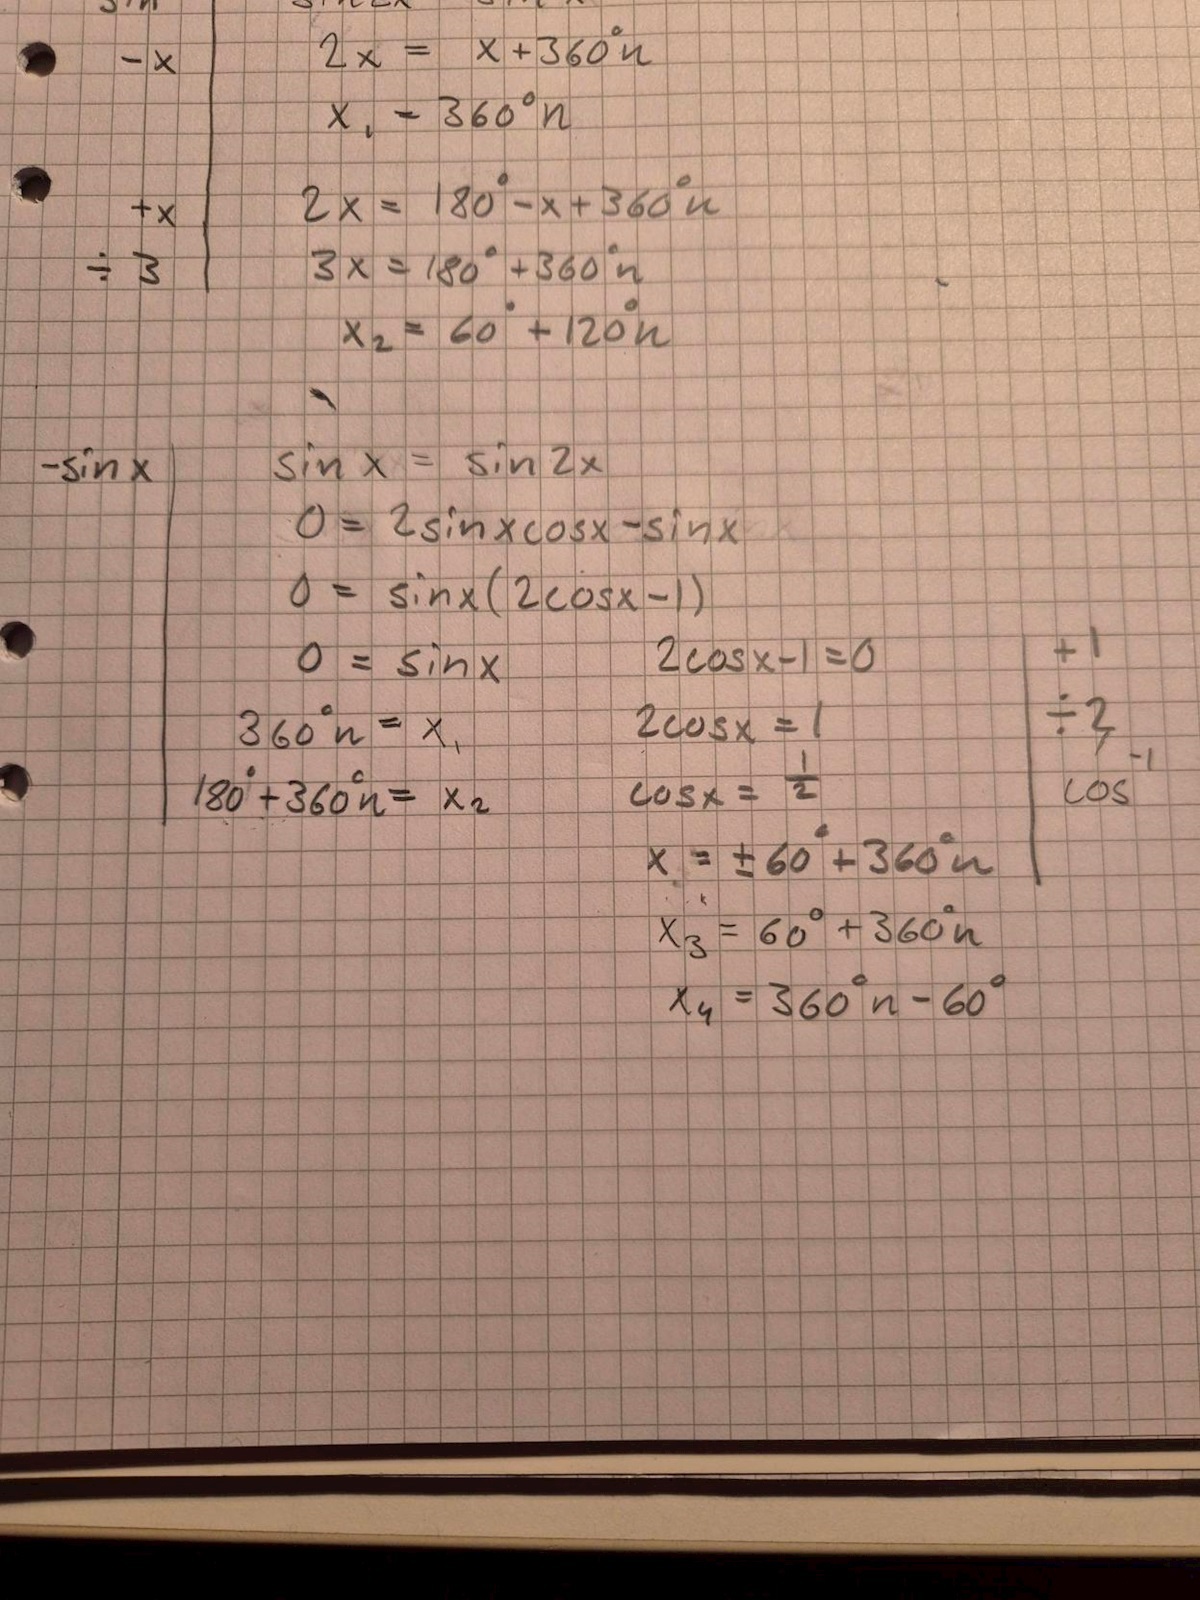 -x 2x = x+360°n
x₁ = 360°n
+x 2x = 180°-x+360°n
÷3 3x = 180°+360°n
x₂ = 60° + 120°n
-sin x sin x = sin 2x
0 = 2sinxcosx-sinx
0 = sinx(2cosx-1)
0 = sinx 2cosx-1=0 +1
360°n = x₁ 2cosx = 1 ÷2
180°+360°n = x₂ cosx = 1/2 cos⁻¹
x = ±60°+360°n
x₃ = 60° + 360°n
x₄ = 360°n - 60°